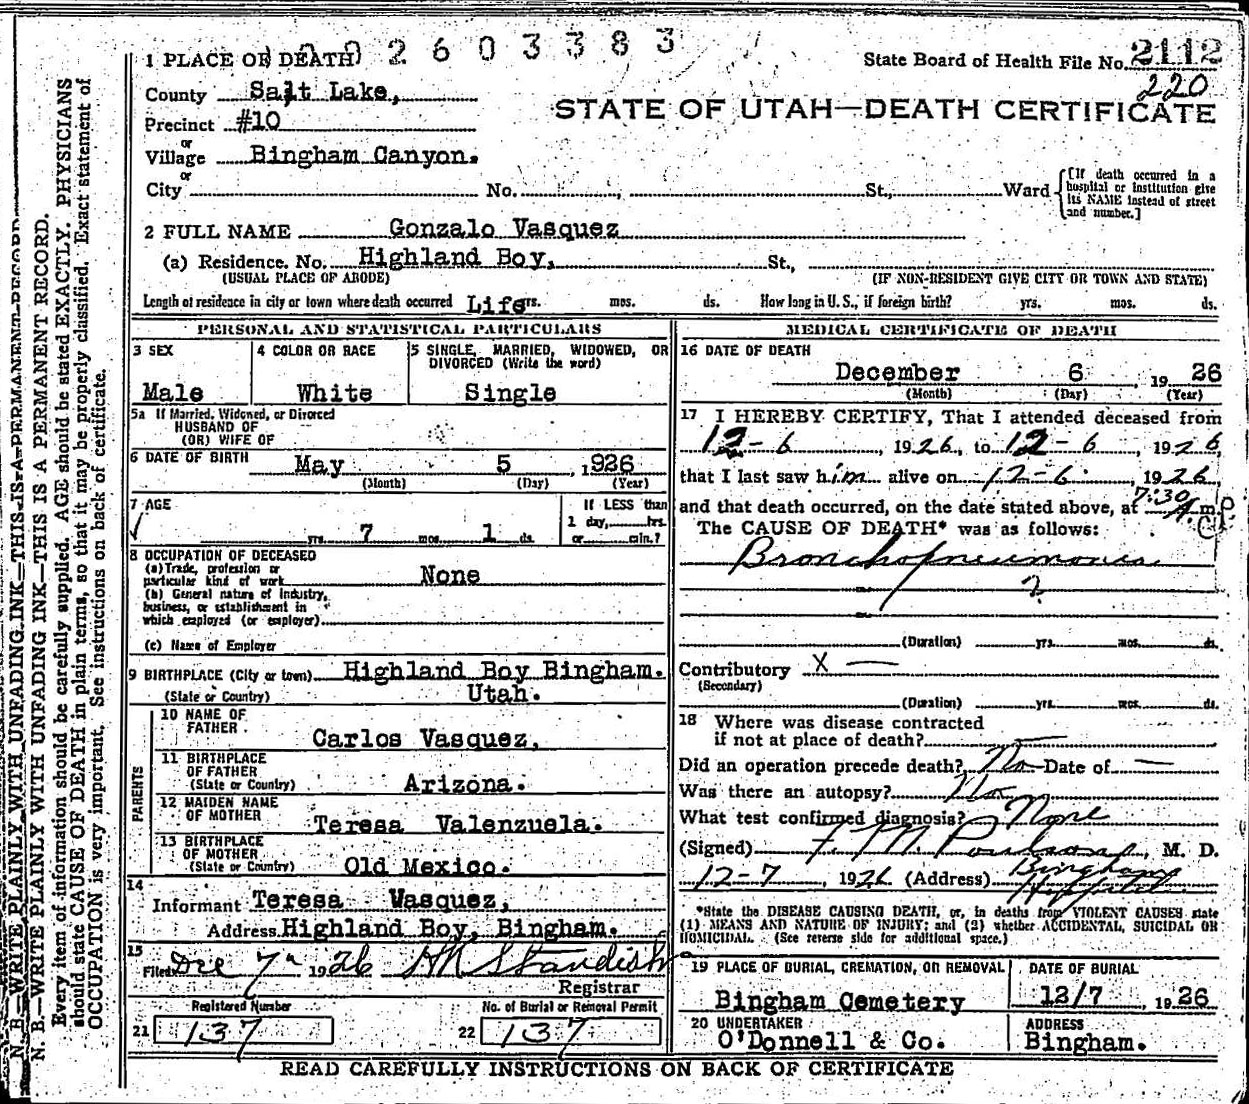 1 PLACE OF DEATH 2 6 0 3 3 8 3 State Board of Health File No. 2112
220
County Salt Lake,
STATE OF UTAH—DEATH CERTIFICATE
Precinct #10
or
Village Bingham Canyon.
or
City No. , St., Ward
[If death occurred in a hospital or institution give its NAME instead of street and number.]
2 FULL NAME Gonzalo Vasquez
(a) Residence. No. Highland Boy, St.,
(USUAL PLACE OF ABODE) (IF NON-RESIDENT GIVE CITY OR TOWN AND STATE)
Length of residence in city or town where death occurred Life yrs. mos. ds. How long in U. S., if foreign birth? yrs. mos. ds.
PERSONAL AND STATISTICAL PARTICULARS
3 SEX
Male
4 COLOR OR RACE
White
5 SINGLE, MARRIED, WIDOWED, OR DIVORCED (Write the word)
Single
5a If Married, Widowed, or Divorced
HUSBAND OF
(OR) WIFE OF
6 DATE OF BIRTH May 5 , 1926
(Month) (Day) (Year)
7 AGE
yrs. 7 mos. 1 ds.
If LESS than
1 day, hrs.
or min.?
8 OCCUPATION OF DECEASED
(a) Trade, profession or
particular kind of work None
(b) General nature of Industry,
business, or establishment in
which employed (or employer)
(c) Name of Employer
9 BIRTHPLACE (City or town) Highland Boy Bingham.
(State or Country) Utah.
PARENTS
10 NAME OF
FATHER
Carlos Vasquez,
11 BIRTHPLACE
OF FATHER
(State or Country) Arizona.
12 MAIDEN NAME
OF MOTHER
Teresa Valenzuela.
13 BIRTHPLACE
OF MOTHER
(State or Country) Old Mexico.
14
Informant Teresa Vasquez,
Address Highland Boy, Bingham.
15
Filed Dec 7" 1926 H M Standish
Registrar
Registered Number
21 137
No. of Burial or Removal Permit
22 137
MEDICAL CERTIFICATE OF DEATH
16 DATE OF DEATH
December 6 , 19 26
(Month) (Day) (Year)
17 I HEREBY CERTIFY, That I attended deceased from
12-6 , 1926, to 12-6 , 1926,
that I last saw him alive on 12-6 , 1926,
and that death occurred, on the date stated above, at 7:30 m.
The CAUSE OF DEATH* was as follows:
Bronchopneumonia
?
(Duration) yrs. mos. ds.
Contributory X —
(Secondary)
(Duration) yrs. mos. ds.
18 Where was disease contracted
if not at place of death? —
Did an operation precede death? No Date of —
Was there an autopsy? No
What test confirmed diagnosis? None
(Signed) F. M. Poulson, M. D.
12-7 , 1926 (Address) Bingham
Hospital
*State the DISEASE CAUSING DEATH, or, in deaths from VIOLENT CAUSES state
(1) MEANS AND NATURE OF INJURY; and (2) whether ACCIDENTAL, SUICIDAL OR
HOMICIDAL. (See reverse side for additional space.)
19 PLACE OF BURIAL, CREMATION, OR REMOVAL
Bingham Cemetery
DATE OF BURIAL
12/7 , 19 26
20 UNDERTAKER
O'Donnell & Co.
ADDRESS
Bingham.
READ CAREFULLY INSTRUCTIONS ON BACK OF CERTIFICATE
N. B.—WRITE PLAINLY WITH UNFADING INK—THIS IS A PERMANENT RECORD.
N. B.—WRITE PLAINLY WITH UNFADING INK—THIS IS A PERMANENT RECORD.
Every item of information should be carefully supplied. AGE should be stated EXACTLY. PHYSICIANS
should state CAUSE OF DEATH in plain terms, so that it may be properly classified. Exact statement of
OCCUPATION is very important. See instructions on back of certificate.